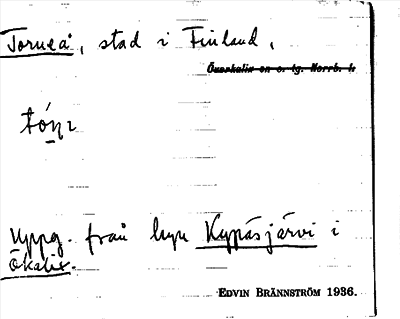 Torneå, stad i Finland.
Överkalix sn o. tg. Norrb. l.
Uppg. från byn Kypäsjärvi i
Ökalix.
EDVIN BRÄNNSTRÖM 1936.